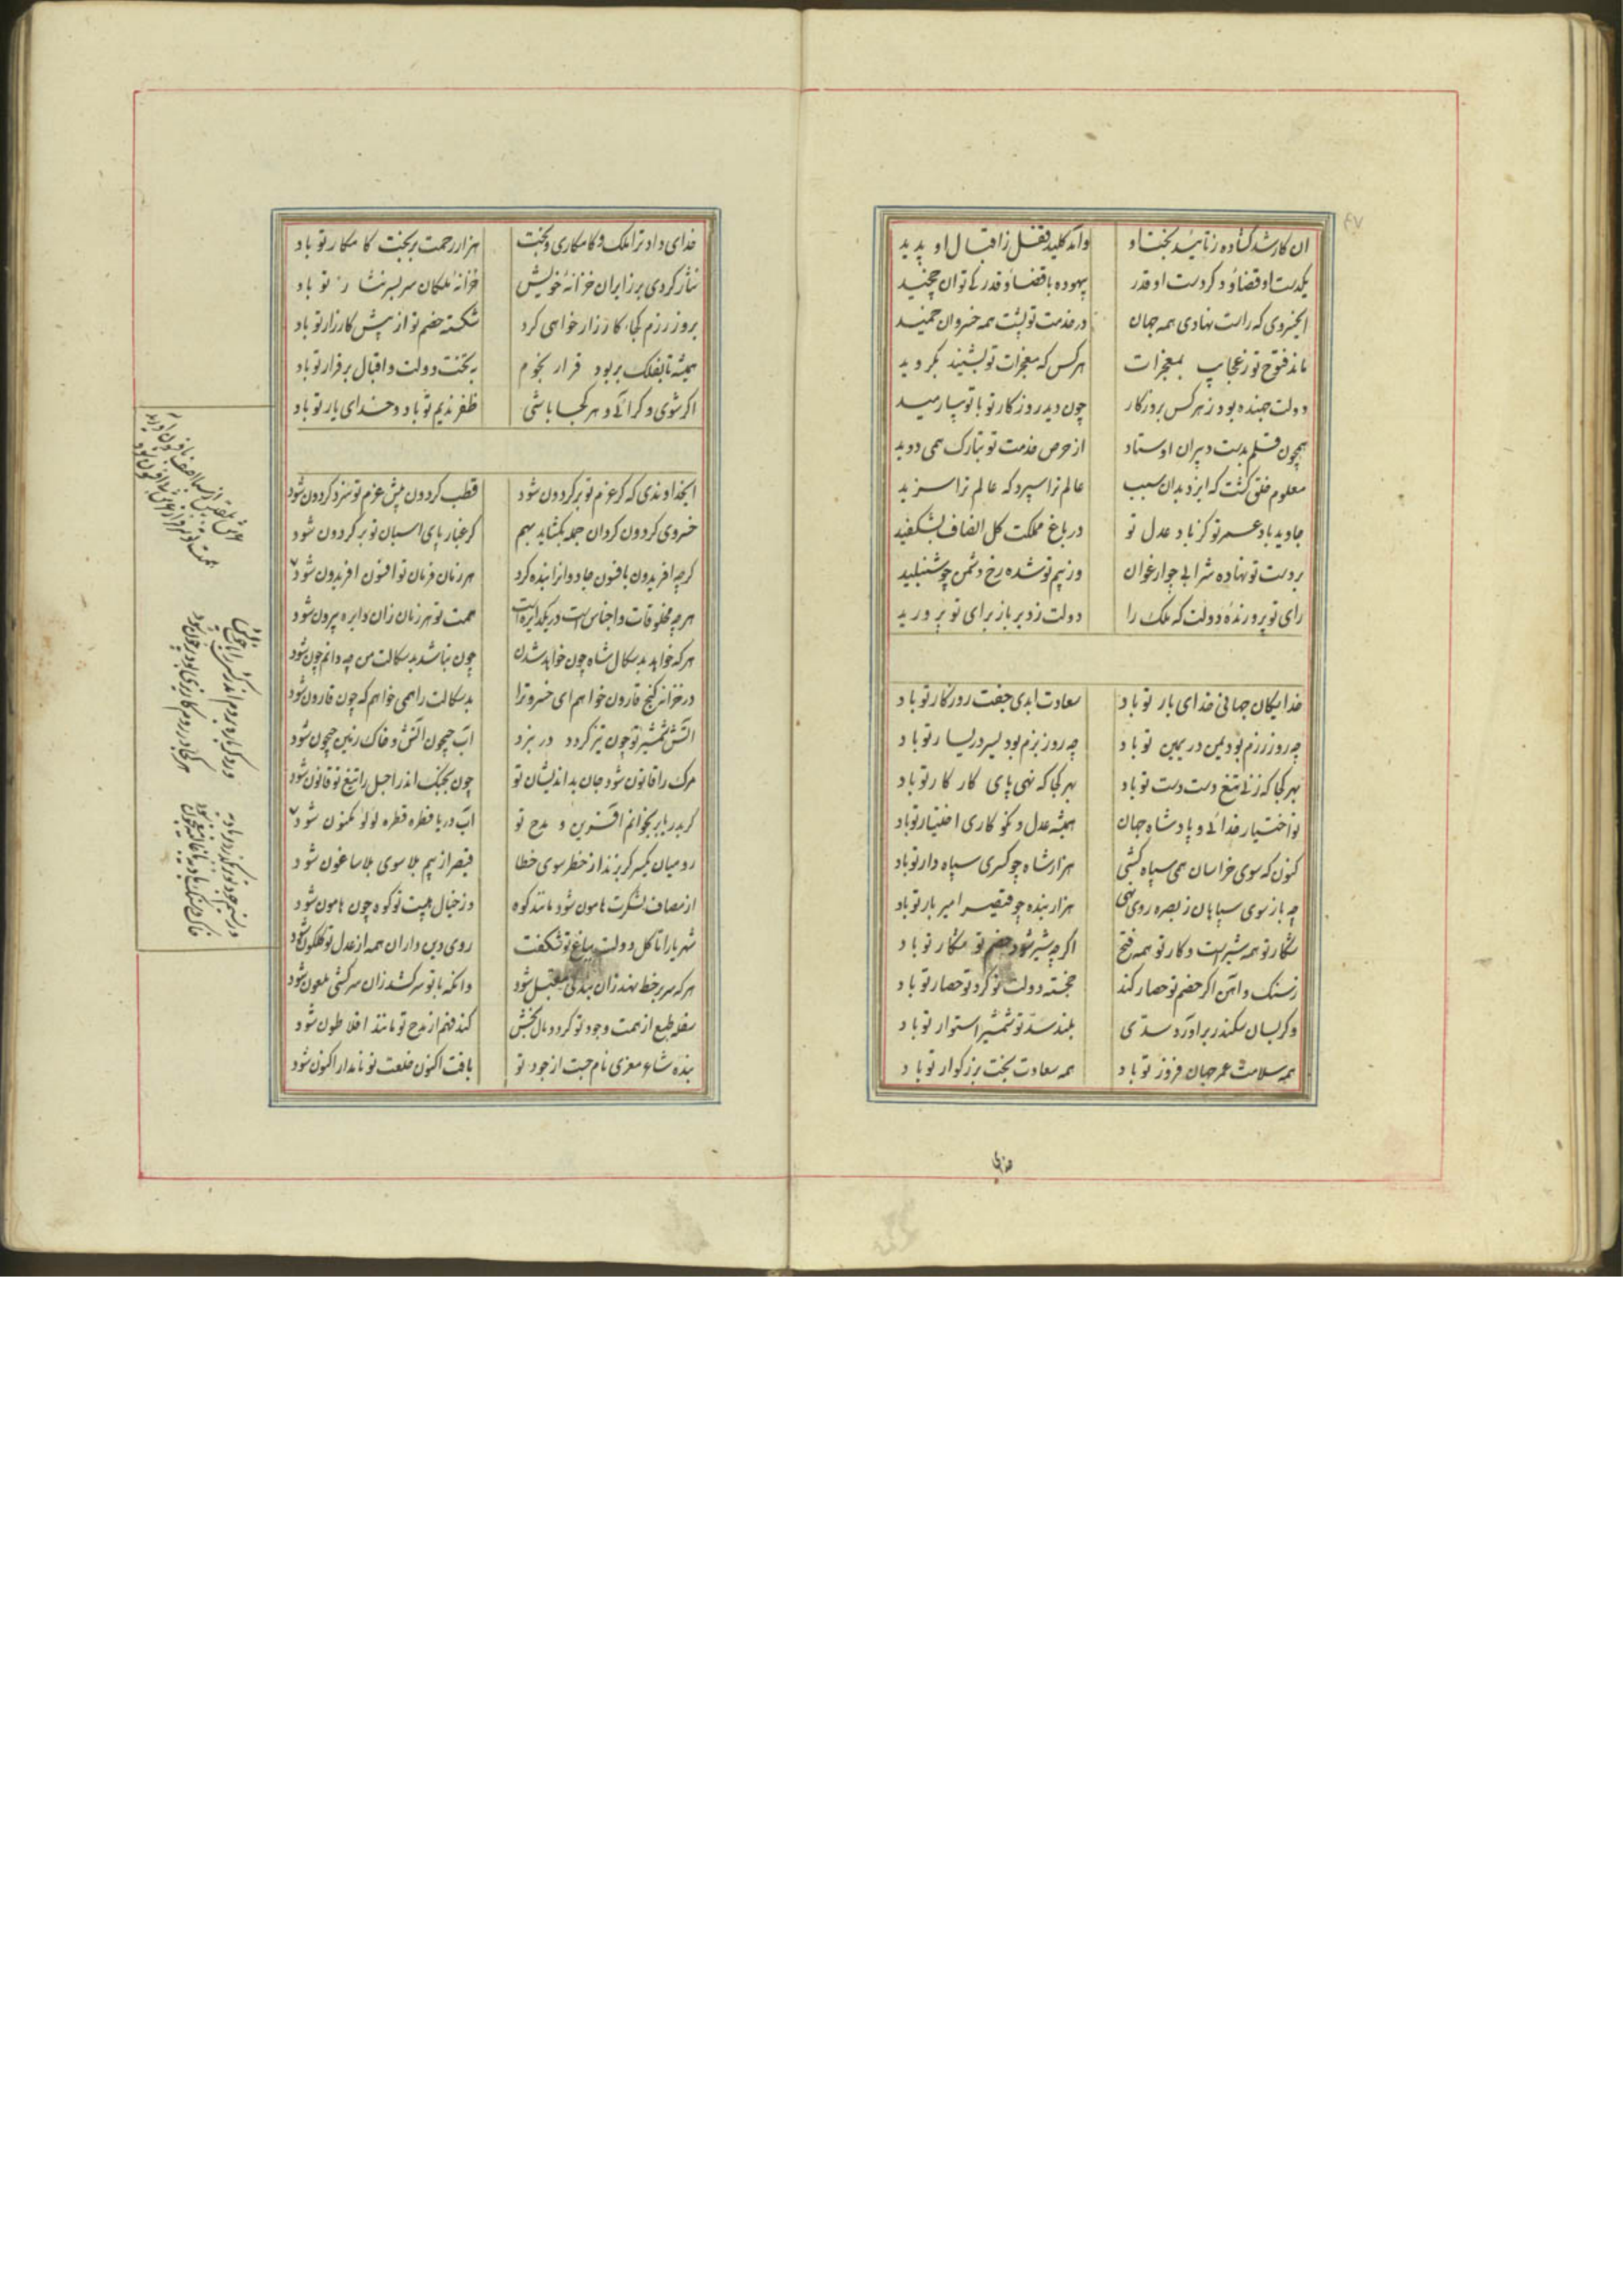 ۸۷
ان کار شد گشاده ز تایید بخت او وآمد کلید قفل ز اقبال او پدید
یکدست او قضا و دکر دست او قدر بیهوده با قضا و قدر کی توان چخید
ای خسروی که راست نهادی همه جهان در خدمت تو پشت همه خسروان خمید
ماند فتوح تو ز عجایب بمعجزات هرکس که معجزات تو بشنید بکروید
دولت جهنده بود ز هرکس بروزکار چون دید روزکار تو با تو بیارمید
همچون قلم بدست دبیران اوستاد از حرص خدمت تو بتارک همی دوید
معلوم خلق کشت که ایزد بدان سبب عالم ترا سپرد که عالم ترا سزید
جاوید باد عمر تو کز باد عدل تو در باغ مملکت کل انصاف بشکفید
بر دست تو نهاده شرابی چو ارغوان وز بیم تو شده رخ دشمن چو شنبلید
رای تو پرورنده دولت که ملک را دولت ز دیر باز برای تو پرورید
خدایکان جهانی خدای یار تو باد سعادت ابدی جفت روزکار تو باد
چه روز رزم بود یمن در یمین تو باد چه روز بزم بود یسر در یسار تو باد
بهر کجا که زنی تیغ دست دست تو باد بهر کجا که نهی پای کار کار تو باد
تو اختیار خدائی و پادشاه جهان همیشه عدل و نکو کاری اختیار تو باد
کنون که سوی خراسان همی سپاه کشی هزار شاه چو کسری سپاه دار تو باد
چه باز سوی سپاهان ز بصره روی نهی هزار بنده چو قیصر امیر بار تو باد
شکار تو همه شیر است و کار تو همه فتح اکر چه شیر شود خصم تو شکار تو باد
ز سنک و آهن اکر خصم تو حصار کند خجسته دولت تو کرد تو حصار تو باد
وکر بسان سکندر براورد سدی بلند سد تو شمشیر استوار تو باد
همه سلامت عمر جهان فروز تو باد همه سعادت بخت بزرکوار تو باد
خدای
خدای داد ترا ملک و کامکاری و بخت هزار رحمت بر بخت کامکار تو باد
نثار کردی بر زایران خزانه خویش خزانه ملکان سر بسر نثار تو باد
بروز رزم کجا کارزار خواهی کرد شکسته خصم تو از پیش کارزار تو باد
همیشه تا بفلک بر بود قرار نجوم به تخت دولت و اقبال بر قرار تو باد
اکر شوی و کر آئی و هر کجا باشی ظفر ندیم تو باد و خدای یار تو باد
ای خداوندی که کر عزم تو بر کردون شود قطب کردون پیش عزم تو سزد کردون شود
خسروی کردون کردان جمله بکشاید بسهم کر غبار پای اسبان تو بر کردون شود
کرچه افریدون بافسون جادوانرا بنده کرد هر زمان فرمان تو افسون افریدون شود
هر چه مخلوقات و اجناس است در یک دایره است همت تو هر زمان زان دایره بیرون شود
هر که خواهد بدسکال شاه چون خواهد شدن چون نباشد بدسکالت من چه دانم چون شود
در خزانه کنج قارون خواهم ای خسرو ترا بدسکالت را همی خواهم که چون قارون شود
آتش شمشیر تو چون تیز کردد در نبرد آب جیحون آتش و خاک زمین جیحون شود
مرک را قانون شود جان بداندیشان تو چون بجنک اندر اجل را تیغ تو قانون شود
کر بدریا بر بخوانم آفرین و مدح تو آب دریا قطره قطره لولو مکنون شود
رومیان یکسر کریزند از خطر سوی خطا قیصر از بیم بلا سوی بلاساغون شود
از مصاف لشکرت هامون شود مانند کوه وز خیال هیبت تو کوه چون هامون شود
شهریارا تا کل دولت بباغ تو شکفت روی دین داران همه از عدل تو کلکون شود
هر که سر بر خط نهد زان بندکی مقبل شود وانکه با تو سر کشد زان سرکشی ملعون شود
سفله طبع از همت و جود تو کردد مال بخش کند فهم از مدح تو مانند افلاطون شود
بنده شاه معزی نام جست از جود تو یافت اکنون خلعت تو نامدار اکنون شود